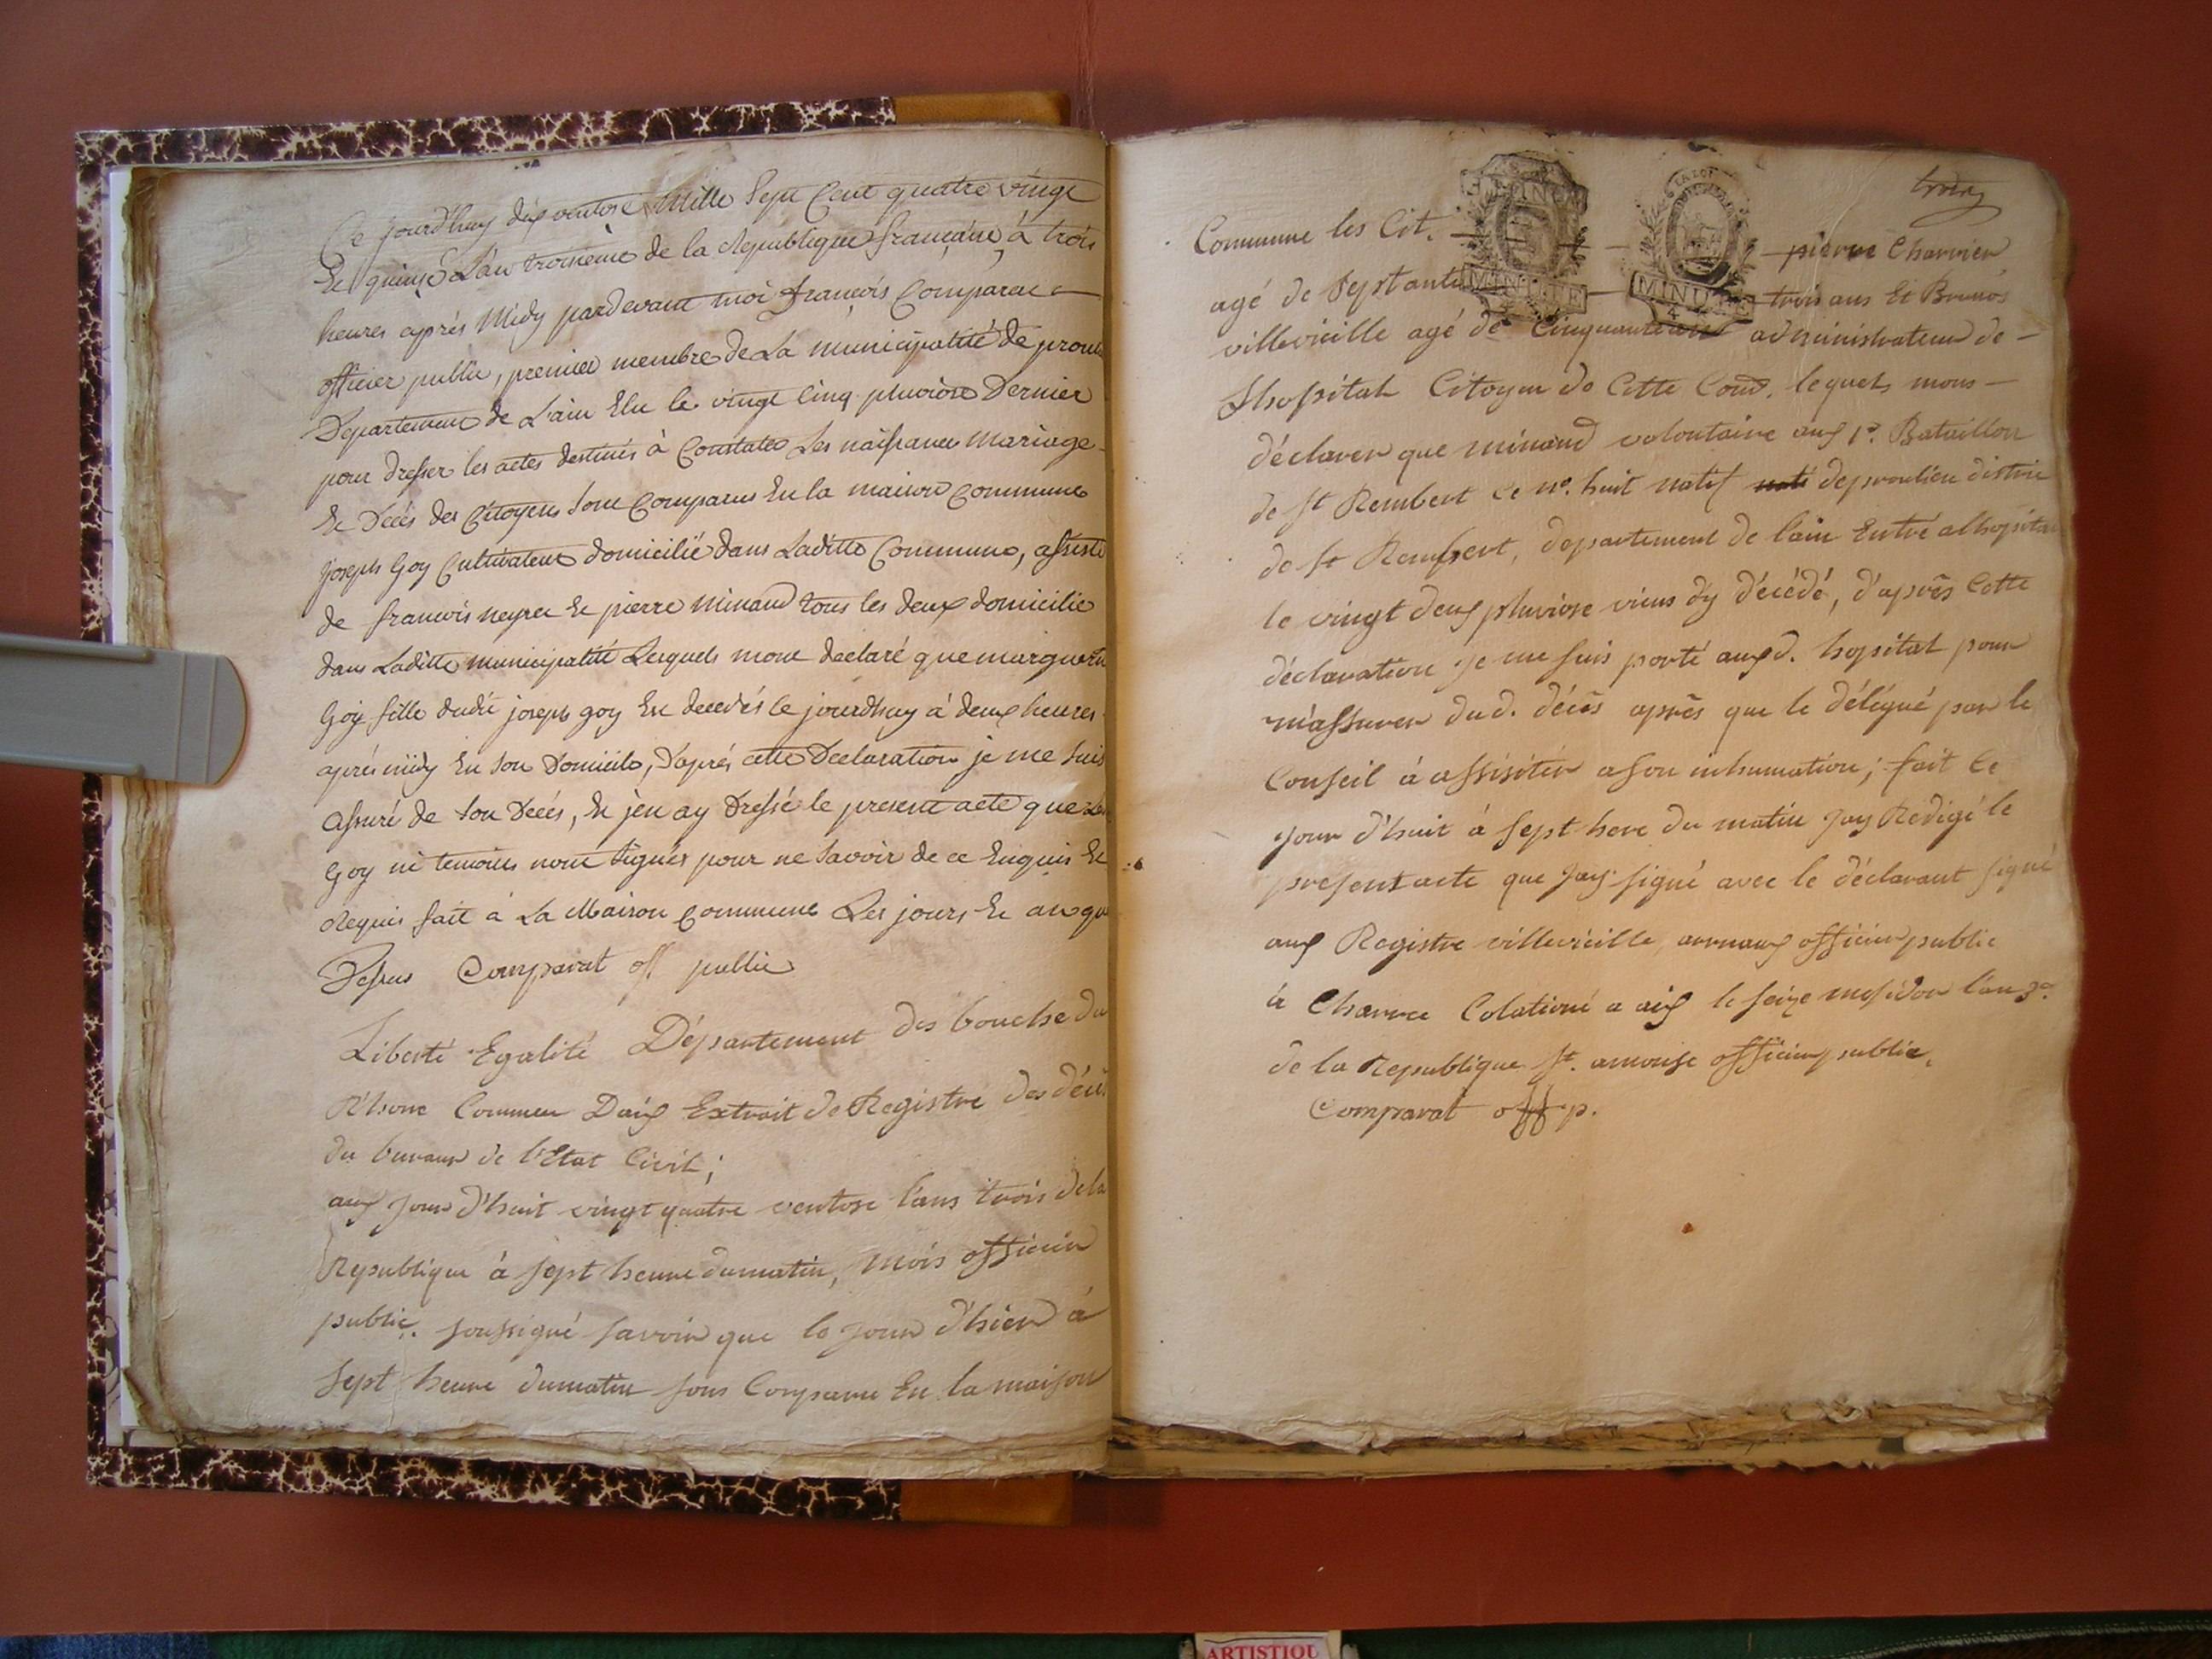 Ce jourd'huy dix ventose Mille Sept Cent quatre vingt
Et quinze L'an troisieme de la Republique française, à trois
heures après Midy pardevant moi françois Comparat
officier public, premier membre de La municipalité de proul
Departement de L'ain Elu le vingt Cinq pluviose Dernier
pour dresser les actes destinés à Constater Les naissances Mariage
Et Décès des Citoyens Sont Comparus En la maison Commune
joseph Goy Cultivateur domicilié dans Laditte Commune, assisté
de francois neyret Et pierre Minand tous les deux domicilié
dans Laditte municipalité Lesquels mont declaré que marguerit
Goy fille dudit joseph goy Est decedés le jourdhuy à deux heures
après midy En son Domicile, D'après cette Declaration je me Suis
assuré de son Décés, Et jen ay Dressé le present acte que Led
Goy ni temoins nont Signés pour ne Savoir de ce Enquis Et
Requis fait à La Maison Commune Les jours Et an que
Dessus Comparat off public
Liberté Egalité Département des bouche du
Rhone Commeu Daix Extrait de Registre des décès
du bureaux de l'Etat Civil;
aux Jour d'huit vingt quatre ventose l'ans trois dela
Republique à sept heure dumatin, Mois officier
public soussigné savoir que le jour d'hier à
sept heure dumatin sons Comparu En la maison
trois
Commune les Cit. pierre Charrier
agé de Septante trois ans Et Brunos
MINUTE MINUTE
LA LOI
villevieille agé de Cinquante ans administrateur de
Lhopital Citoyen de Cette Com. lequels mons
déclarer que minand volontaire aux 1er. Bataillon
de St Rembert Ce no. huit natif nati deproulieu distric
de St Rembert, departement de lain Entré alhopital
le vingt deux pluviose viens d'y décédé, d'après Cette
déclaration je me suis porté auxd. hopital pour
m'assurer dud. décès après que le délégué par le
Conseil à assisiter a son inhumation; fait Ce
jour d'huit à sept here du matin Jay Rédigé le
present acte que Jay signé avec le déclarant signé
aux Registre villevieille, officier public
à Colationé a aix le seize messidor l'an 3e.
de la Republique St. amouise officier public,
Comparat off p.
ARTISTIQU